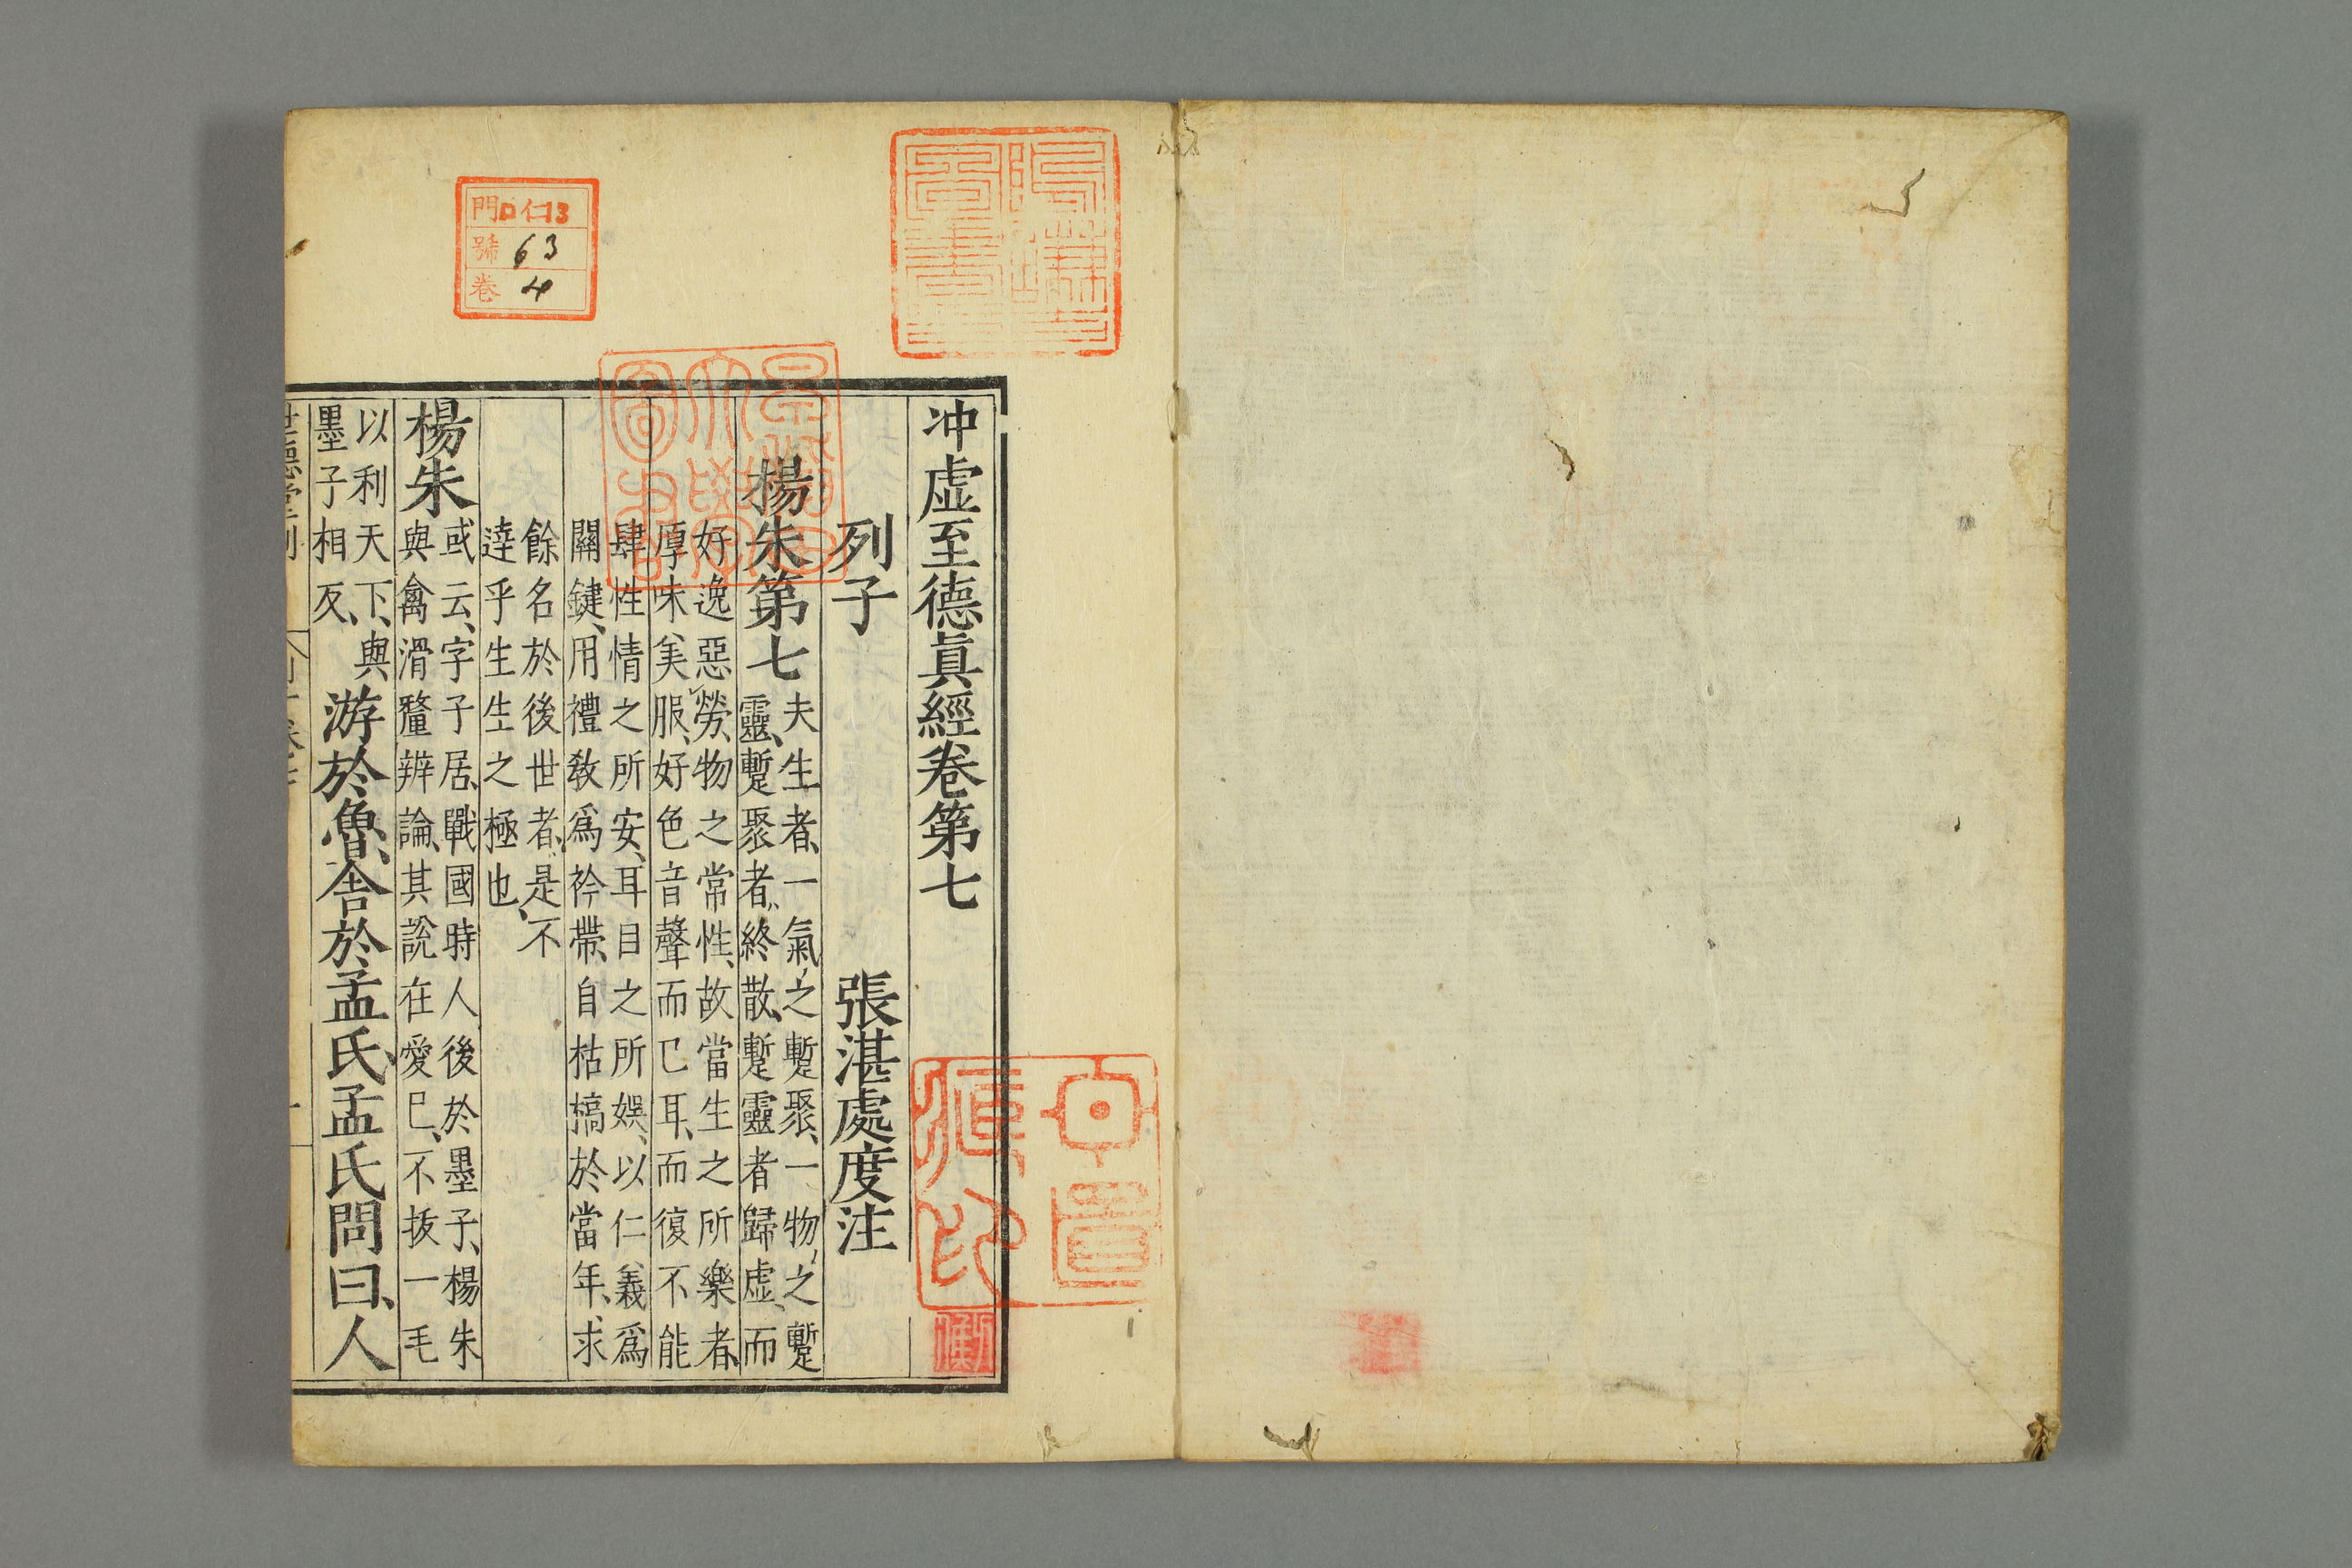 冲虛至德眞經卷第七
列子 張湛處度注
楊朱第七 夫生者、一氣之蹔聚、一物之蹔
靈、蹔聚者、終散、蹔靈者歸虛、而
好逸惡勞、物之常性、故當生之所樂者、
厚味、美服、好色、音聲而已耳、而復不能
肆性情之所安、耳目之所娛、以仁義爲
關鍵、用禮敎爲衿帶、自枯槁於當年、求
餘名於後世者、是不
達乎生生之極也、
楊朱 或云、字子居、戰國時人後於墨子、楊朱
與禽滑釐辨論、其說在愛己、不拔一毛
以利天下、與
墨子相反、 游於魯、舍於孟氏、孟氏問曰、人
世德堂刊
門口仁13
號 63
卷 4